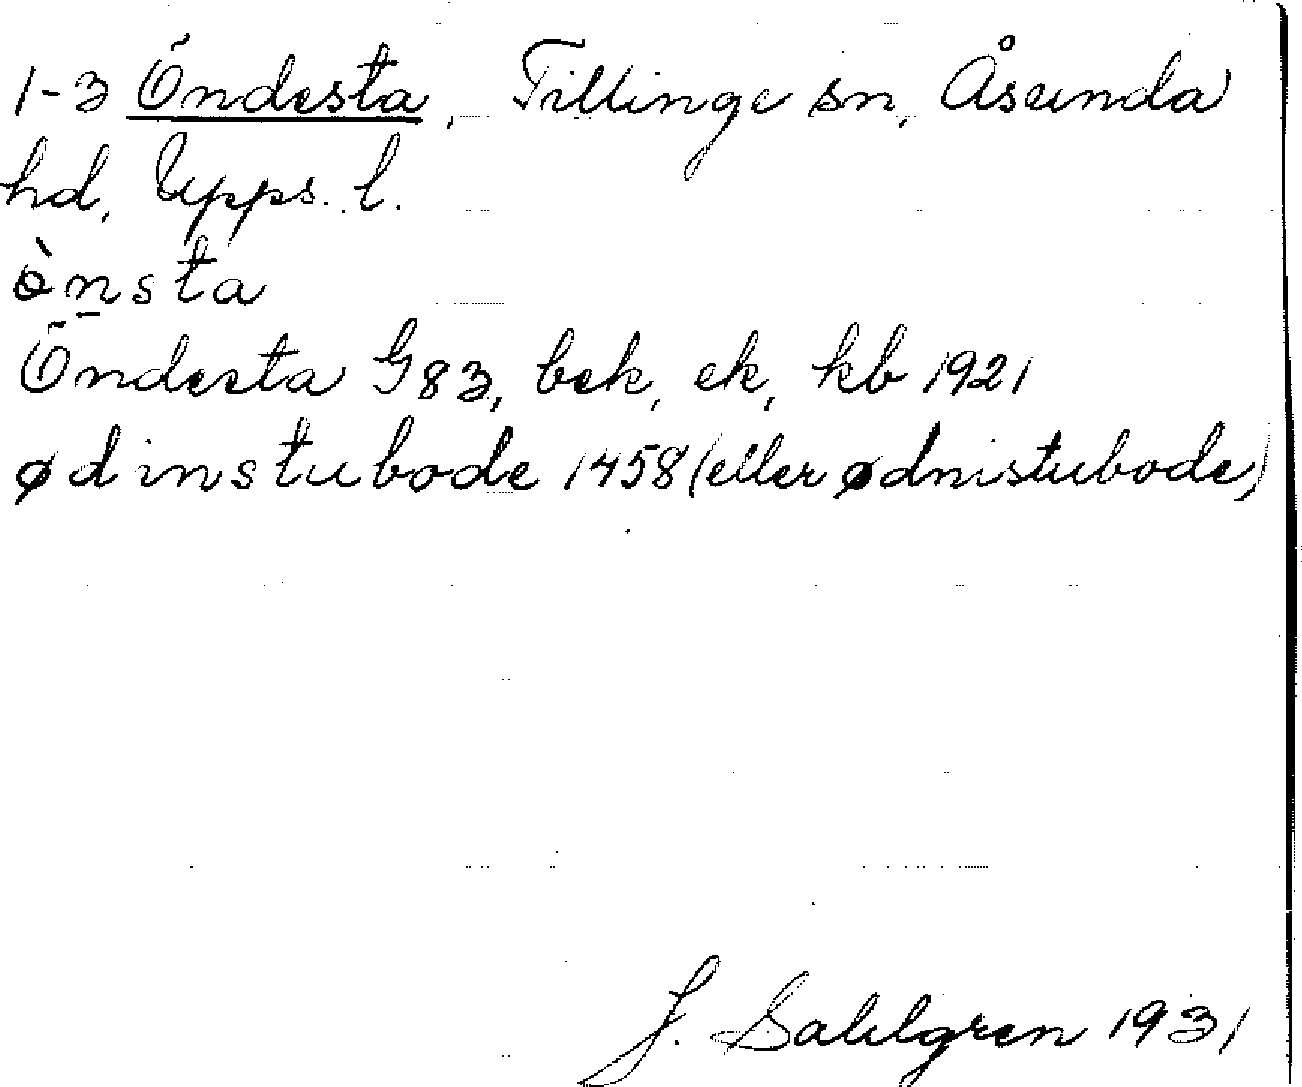 1-3 Öndesta, Tillinge sn, Åsunda
hd, Upps. l.
ö̀nsta
Öndesta G83, bek, ek, kb 1921
ødinstubode 1458 (eller ødnistubode)
J. Sahlgren 1931